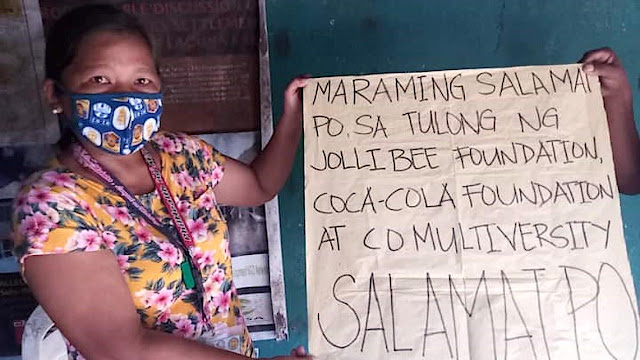 MARAMING SALAMAT
PO, SA TULONG NG
JOLLIBEE FOUNDATION,
COCA-COLA FOUNDATION
AT CO MULTIVERSITY
SALAMAT PO